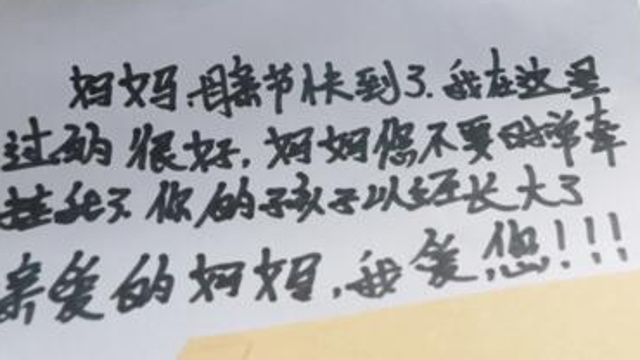 妈妈,母亲节快到了.我在这里
过的很好,妈妈您不要时常牵
挂我了.你的孩子以经长大了
亲爱的妈妈,我爱您!!!